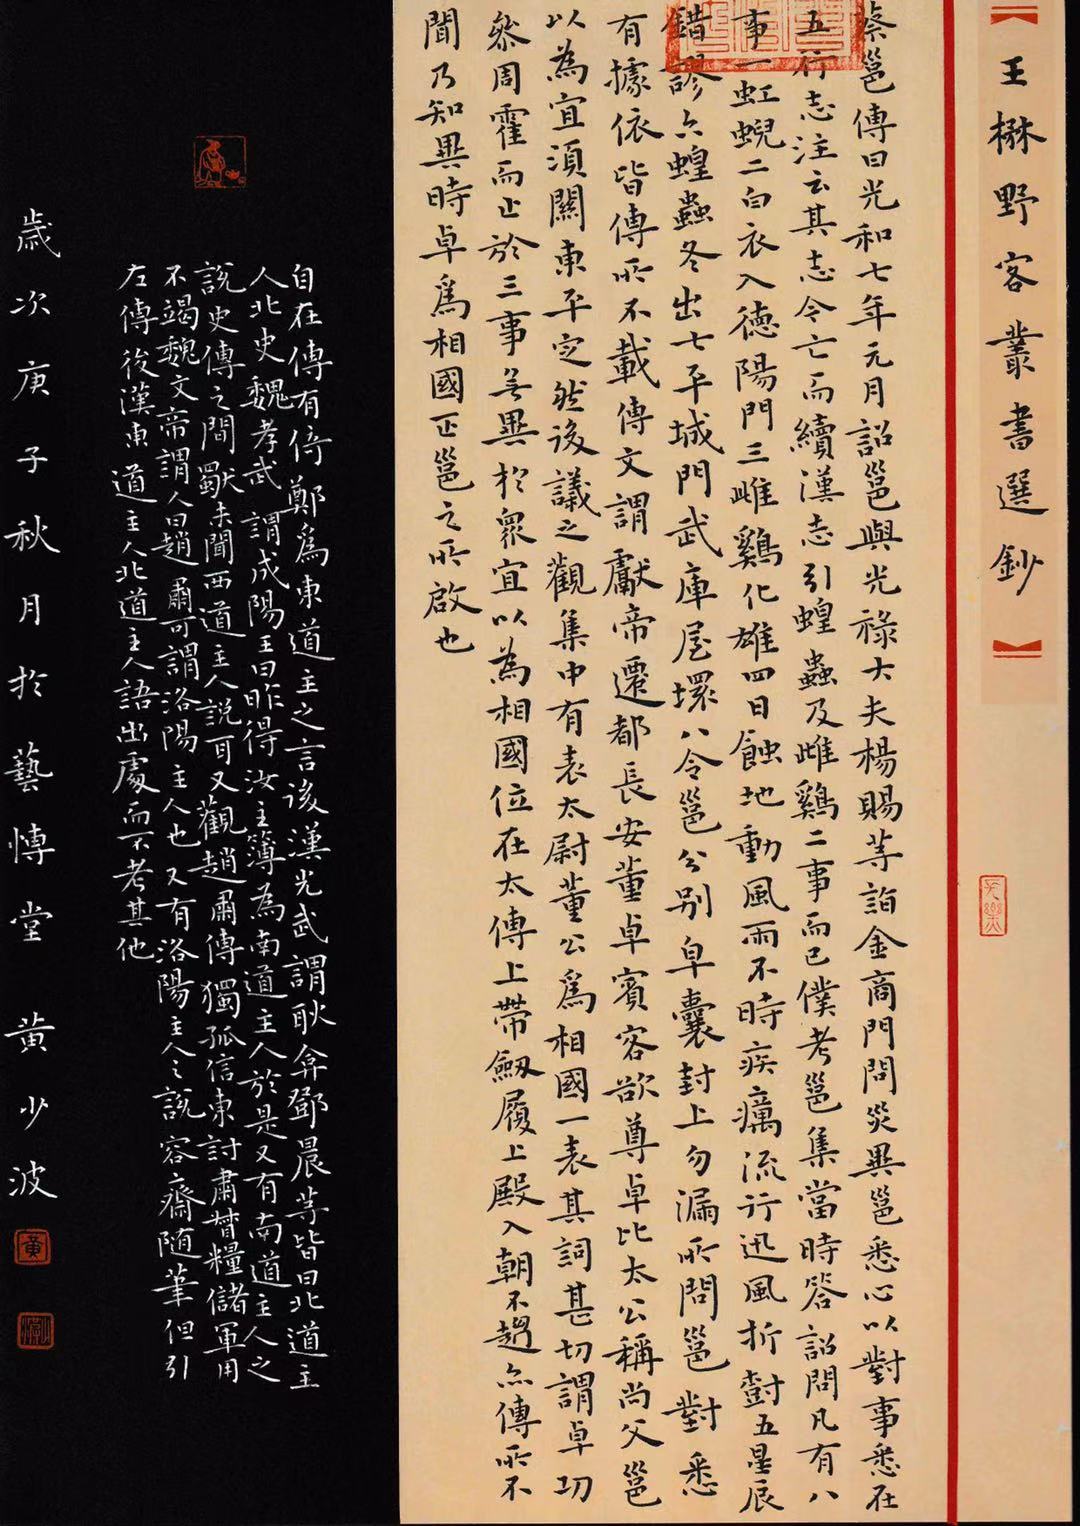 【王楙野客叢書選鈔】
蔡邕傳曰光和七年元月詔邕與光祿大夫楊賜等詣金商門問災異邕悉心以對事悉在
五行志注云其志今亡而續漢志引蝗蟲及雌鷄二事而已僕考邕集當時答詔問凡有八
事一虹蜺二白衣入德陽門三雌鷄化雄四日蝕地動風雨不時疾癘流行迅風折樹五星辰
錯謬六蝗蟲冬出七平城門武庫屋壞八令邕分別皁囊封上勿漏所問邕對悉
有據依皆傳所不載傳文謂獻帝遷都長安董卓賓客欲尊卓比太公稱尚父邕
以為宜須關東平定然後議之觀集中有表太尉董公爲相國一表其詞甚切謂卓功
叅周霍而止於三事無異於衆宜以為相國位在太傅上帶劔履上殿入朝不趨亦傳所不
聞乃知異時卓爲相國正邕之所啟也
自在傳有倚鄭爲東道主之言後漢光武謂耿弇鄧晨等皆曰北道主
人北史魏孝武謂成陽王曰昨得汝主簿為南道主人於是又有南道主人之
說史傳之間獸未聞西道主人說耳又觀趙肅傳獨孤信東討肅督糧儲軍用
不竭魏文帝謂人曰趙肅可謂洛陽主人也又有洛陽主人之說容齋随筆但引
左傳後漢東道主人北道主人語出處而不考其他
歲次庚子秋月於藝慱堂 黃少波
黃